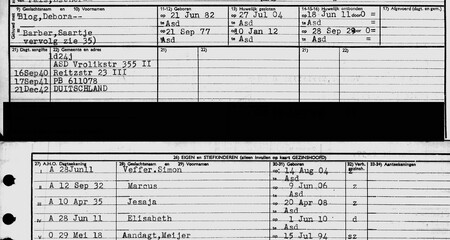 9) Geslachtsnaam en 10) Voornamen 11-12) Geboren 13) Huwelijk gesloten 14-15-16) Huwelijk ontbonden 17) Afgevoerd (dagt. en gem.)
Blog, Debora-- op 21 Jun 82 op 27 Jul 04 op 18 Jun 11 door O =
te Asd te Asd te Asd =
Barber, Saartje op 21 Sep 77 op 10 Jan 12 op 28 Sep 29 door O=
vervolg zie 35) te Asd te Asd te Asd =
21) Dagt. aangifte 22) Gemeente en adres 21) 22) 21) 22)
1d24j
ASD Vrolikstr 355 II
16Sep40 Reitzstr 23 III
17Sep41 PB 611078
21Dec42 DUITSCHLAND
26) EIGEN EN STIEFKINDEREN (alleen invullen op kaart GEZINSHOOFD)
27) A.H.O. Dagtekening 28) Geslachtsnaam en 29) Voornamen 30-31) Geboren 32) Verh. 33-34) Aantekeningen
I A 28Jun11 Veffer. Simon op 14 Aug 04 z
te Asd
II A 12 Sep 32 Marcus op 9 Jun 06 z
te Asd
III A 10 Apr 35 Jesaja op 20 Apr 08 z
te Asd
IV A 28 Jun 11 Elisabeth op 1 Jun 10 d
te Asd
V O 29 Mei 18 Aandagt, Meijer op 15 Jul 94 sz